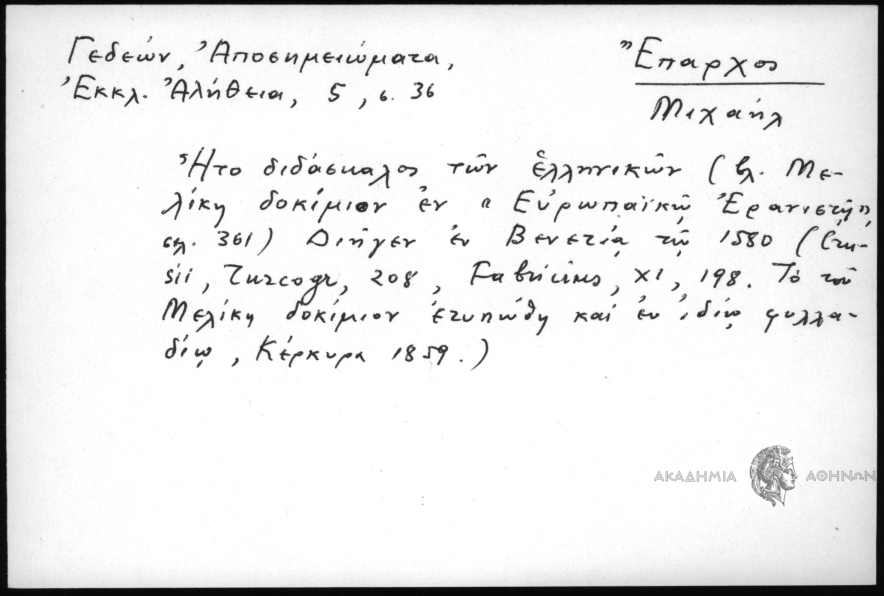 Γεδεών, Ἀποσημειώματα,
Ἐκκλ. Ἀλήθεια, 5, σ. 36
Ἔπαρχος
Μιχαήλ
Ἦτο διδάσκαλος τῶν ἑλληνικῶν (βλ. Με-
λίκη δοκίμιον ἐν "Εὐρωπαϊκῷ Ἐρανιστῇ"
σελ. 361) Διῆγεν ἐν Βενετίᾳ τῷ 1580 (Cru-
sii, Turcogr, 208, Fabricius, XI, 198. Τὸ τοῦ
Μελίκη δοκίμιον ἐτυπώθη καὶ ἐν ἰδίῳ φυλλα-
δίῳ, Κέρκυρα 1859.)
ΑΚΑΔΗΜΙΑ ΑΘΗΝΩΝ